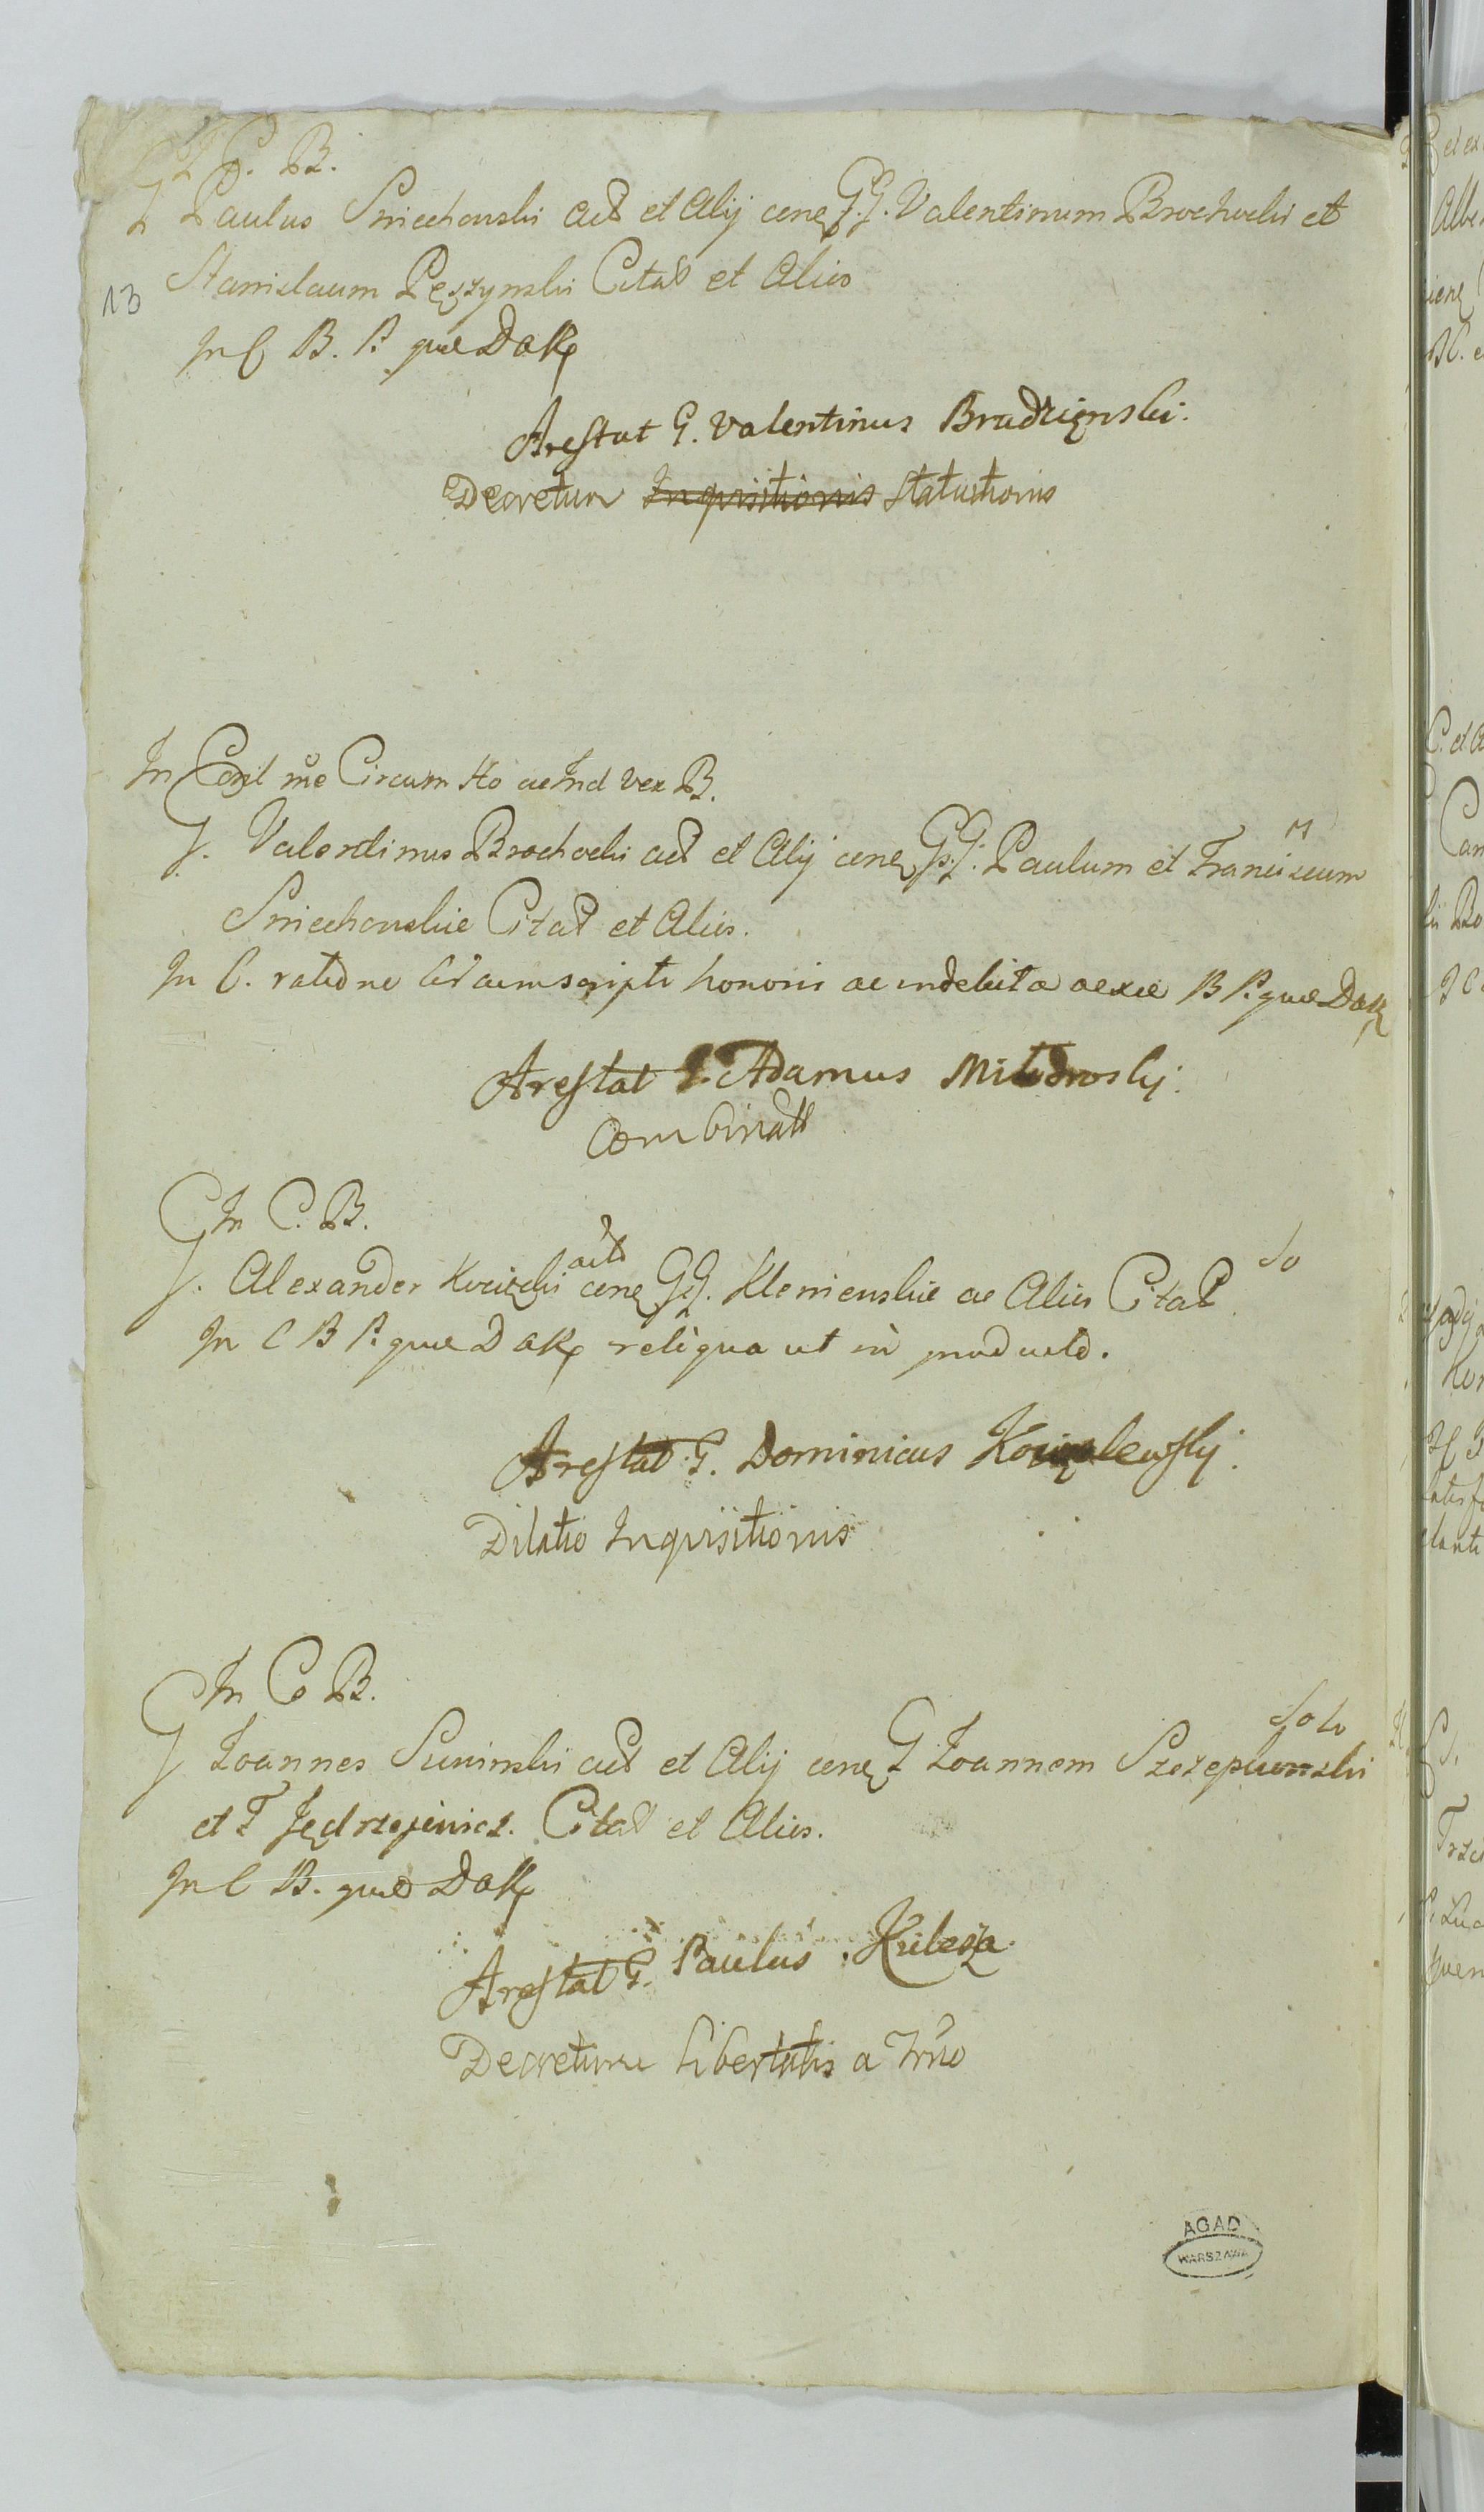 C. B.
G Paulus Sniechowski act et Alij cone GG. Valentinum Brochocki et
13 Stanislaum Pęszynski Citat et Alios
In C B. P. que Dakp
Arestat G. Valentinus Brudzięnski.
Decretum Inquisitionis Statuitionis
In Coñl mõe Circum Ho ac Ind vex B.
G. Valentinus Brochocki act et Alij cone GG. Paulum et Franciscum
Sniechowskie Citat et Alios.
In C. ratione Circumscripti honoris ac indebita aexae B P. que Dakp
Arestat G. Adamus Milodrosky.
Combinatt
In C. B.
G. Alexander act cone GG. Klenienskie ac Alios Citat So
In C B P. que Dakp reliqua ut in producto.
Arestat G. Dominicus
Dilatio Inquisitionis
In C B.
G Ioannes Suminski act et Alij cone G Ioannem Szczepkowski
et F Jędrzejewicz. Citat et Alios.
In C B. que Dakp
Arestat G. Paulus Kulesza.
Decretum libertatis a Trño
AGAD
WARSZAWA